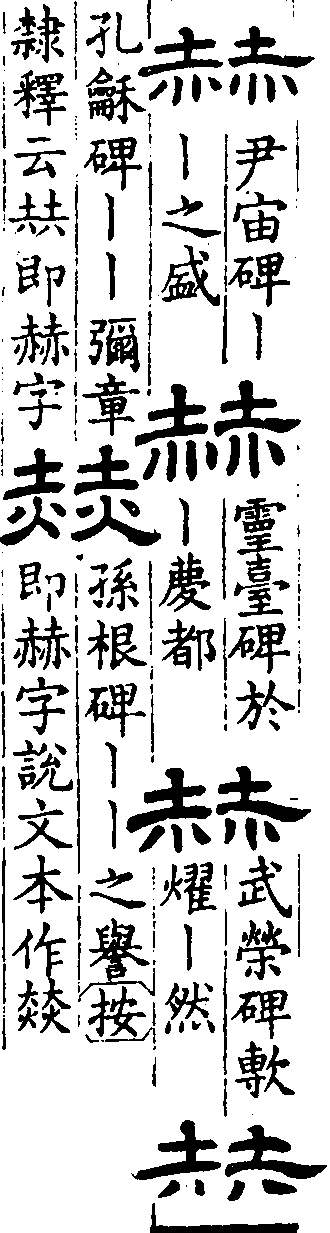 赫
尹宙碑丨
丨之盛
赫
靈臺碑於
丨慶都
赫
武榮碑敷
燿丨然
孔龢碑丨丨彌章
隸釋云 即赫字
孫根碑丨丨之譽按
即赫字說文本作